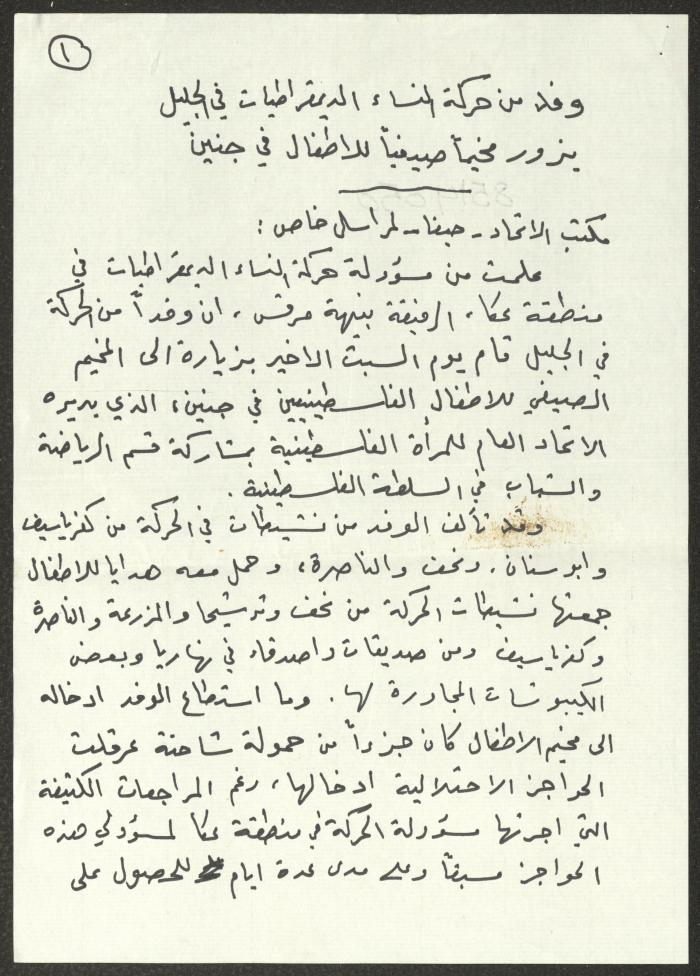 ١
وفد من حركة النساء الديمقراطيات في الجليل
يزور مخيماً صيفياً للاطفال في جنين
مكتب الاتحاد - حيفا - لمراسل خاص :
علمت من مسؤولة حركة النساء الديمقراطيات في
منطقة عكا، الرفيقة بنيهة مرقس، ان وفداً من الحركة
في الجليل قام يوم السبت الاخير بزيارة الى المخيم
الصيفي للاطفال الفلسطينيين في جنين، الذي يديره
الاتحاد العام للمرأة الفلسطينية بمشاركة قسم الرياضة
والشباب في السلطة الفلسطينية.
وقد تألف الوفد من نشيطات في الحركة من كفرياسيف
وابوسنان، ونحف والناصرة، وحمل معه هدايا للاطفال
جمعتها نشيطات الحركة من نحف وترشيحا والمزرعة والناصرة
وكفرياسيف ومن صديقات واصدقاء في نهاريا وبعض
الكيبوتسات المجاورة لها. وما استطاع الوفد ادخاله
الى مخيم الاطفال كان جزءاً من حمولة شاحنة عرقلت
الحواجز الاحتلالية ادخالها، رغم المراجعات الكثيفة
التي اجرتها مسؤولة الحركة في منطقة عكا لمسؤولي هذه
الحواجز مسبقاً وعلى مدى عدة ايام للحصول على